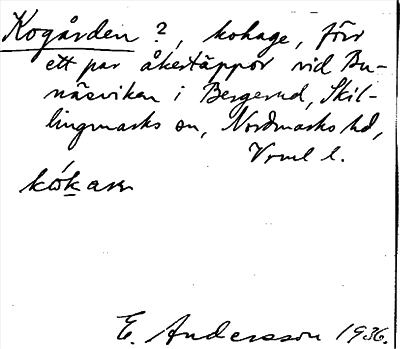 Kogården ?, kohage, förr
ett par åkertäppor vid Bu-
näsviken i Bergerud, Skil-
lingmarks sn, Nordmarks hd,
Vrml l.
E. Andersson 1936.